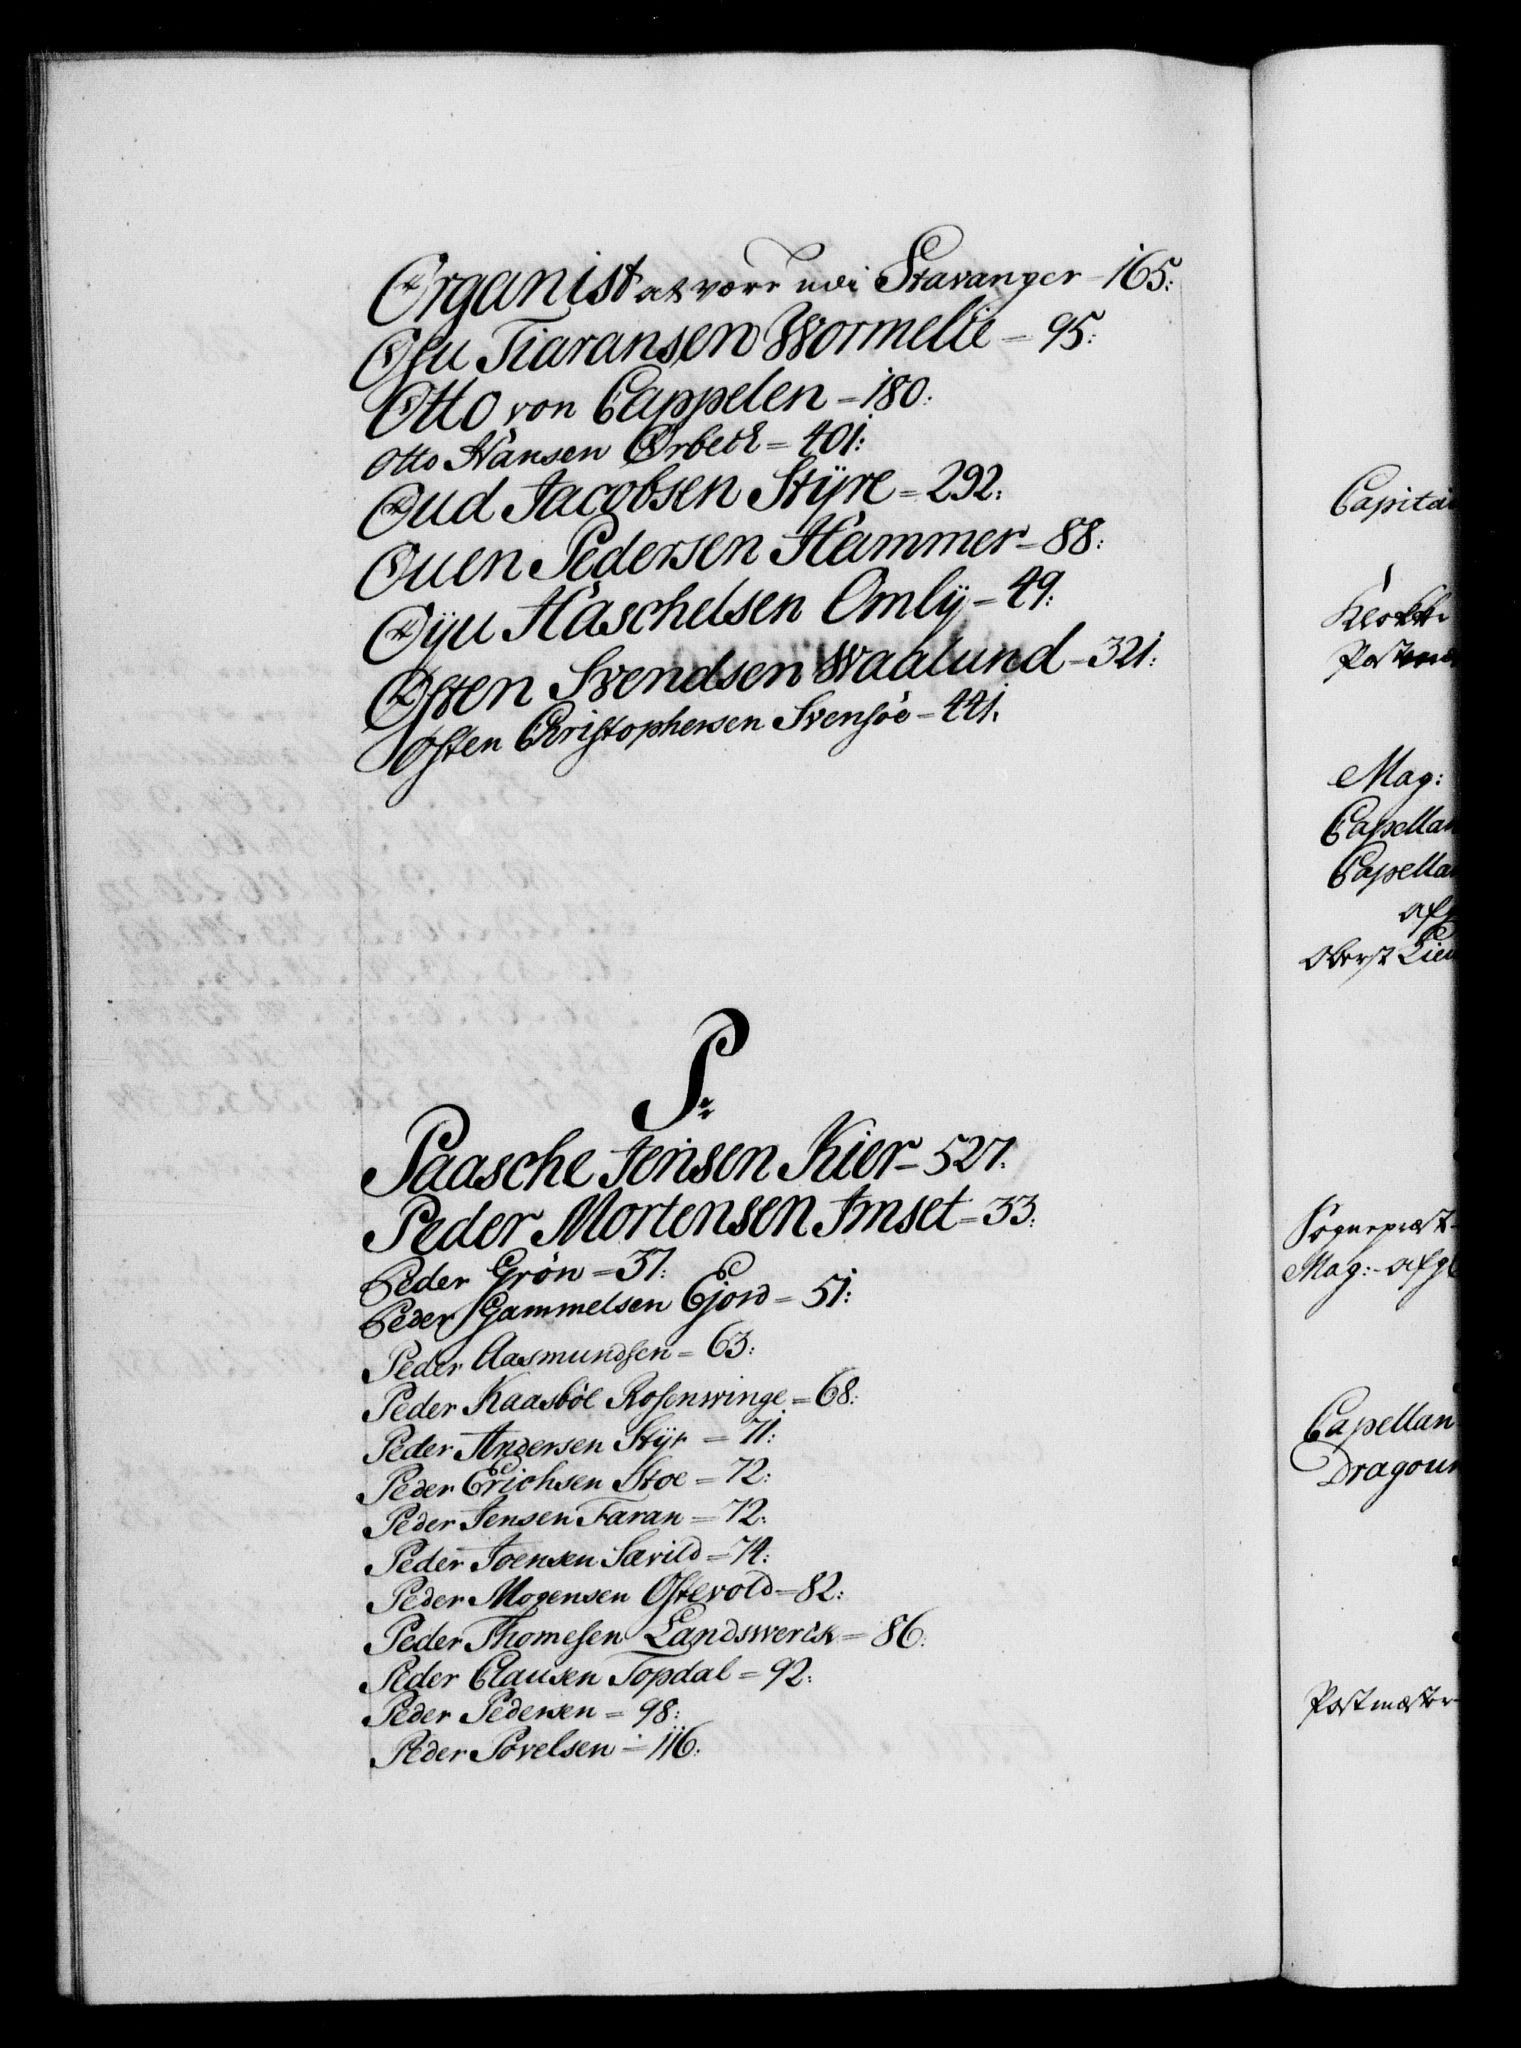 Organist at være udi Stavanger - 165:
Osu Tiaransen Wormelie - 95:
Otto von Cappelen - 180:
Otto Hansen Ørbech = 401:
Oud Jacobsen Stÿre = 292:
Ouen Pedersen Hammer - 88:
Oÿu Haschelsen Omlÿ - 49:
Osten Svendsen Waalund - 321:
Osten Christophersen Svensöe - 441.
P:
Paasche Jensen Kier - 527:
Peder Mortensen Imset = 33:
Peder Grön = 37:
Peder Gammelsen Ejord = 51:
Peder Aasmundsen = 63:
Peder Kaasböl Rosenwinge = 68:
Peder Andersen Stÿr = 71:
Peder Erichsen Stoe = 72:
Peder Jensen Faran = 72:
Peder Joensen Særild = 74:
Peder Mogensen Ostevold = 82:
Peder Thomesen Landswerck = 86:
Peder Clausen Topdal = 92:
Peder Pedersen = 98:
Peder Povelsen = 116:
Capitai
Klokke
Post
Mag:
Capellan
Capellan
afg
Oberst Lieu
Sogneprest
Mag: afg
Capellan
Dragoun
Postmester